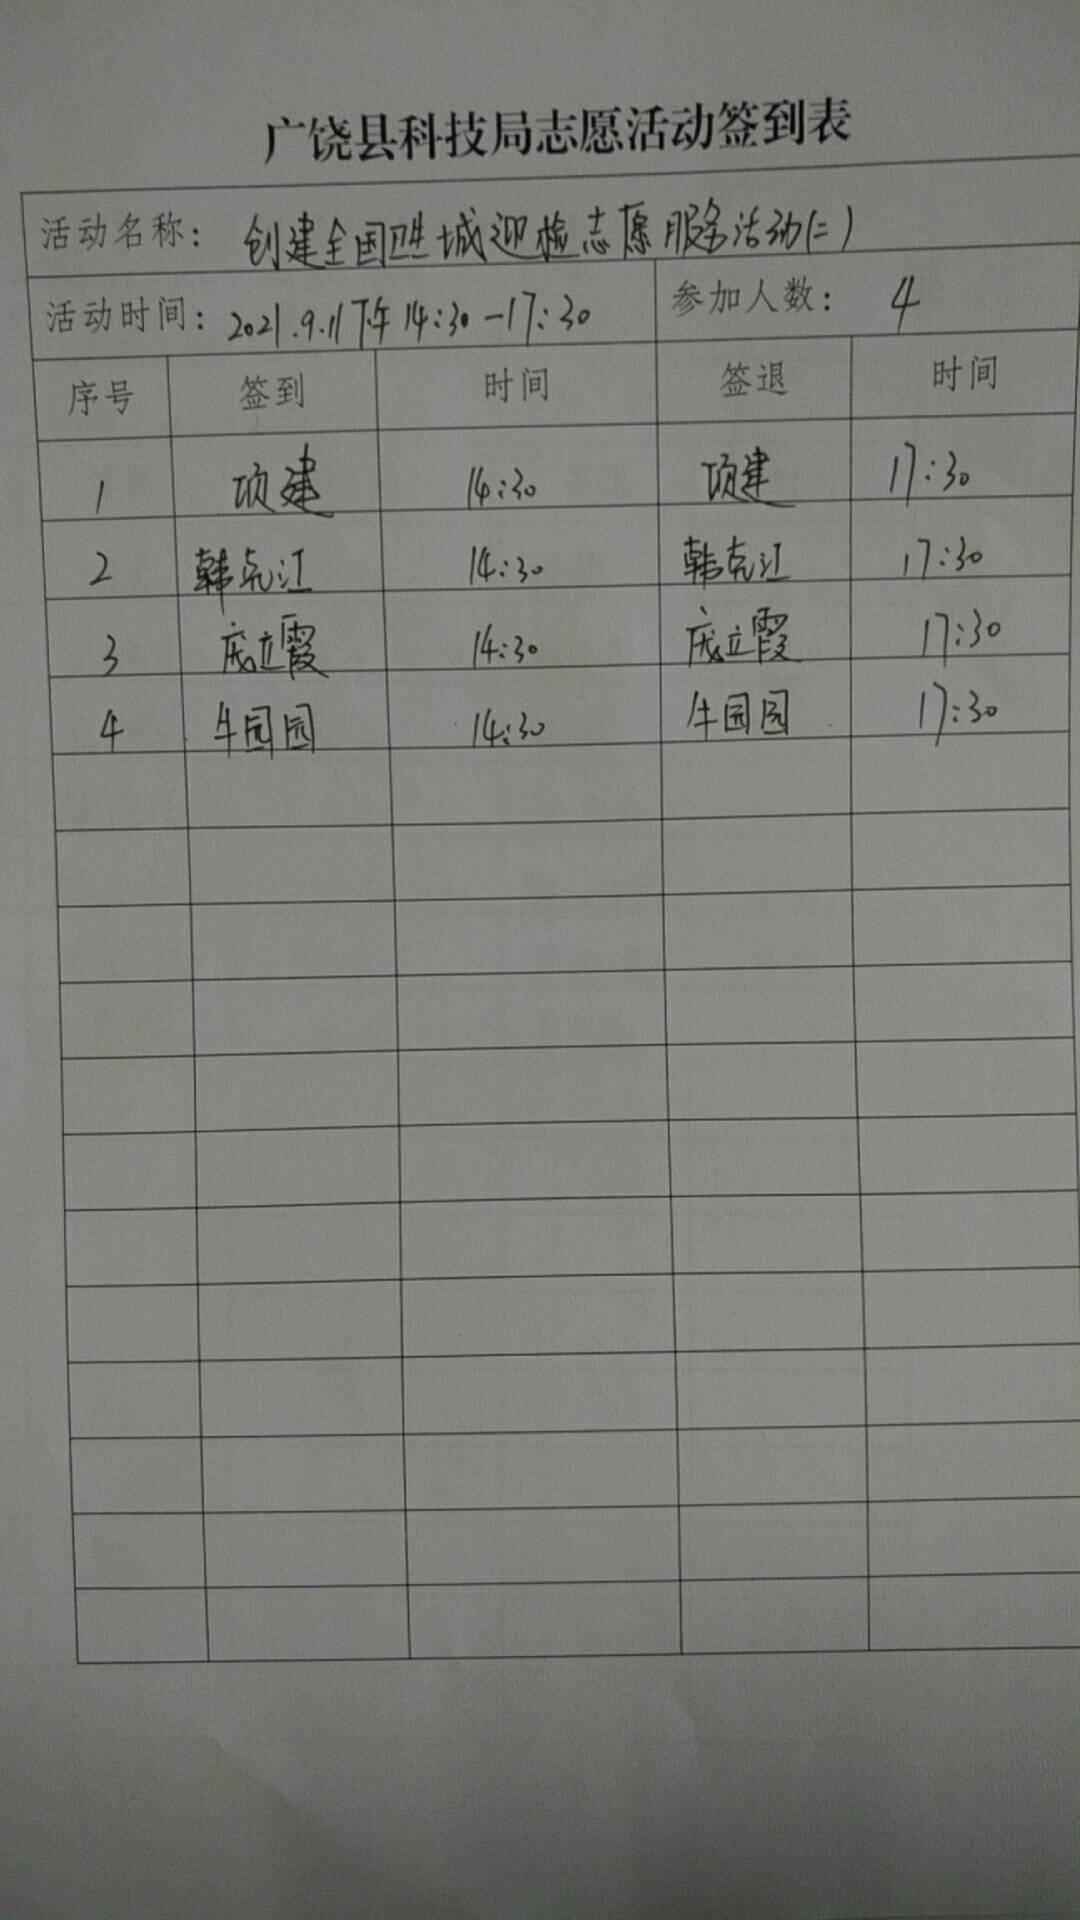 广饶县科技局志愿活动签到表
活动名称: 创建全国卫生城迎检志愿服务活动(二)
活动时间: 2021.9.11下午14:30-17:30 参加人数: 4
序号 签到 时间 签退 时间
1 项建 14:30 项建 17:30
2 韩克江 14:30 韩克江 17:30
3 庞立霞 14:30 庞立霞 17:30
4 牛园园 14:30 牛园园 17:30